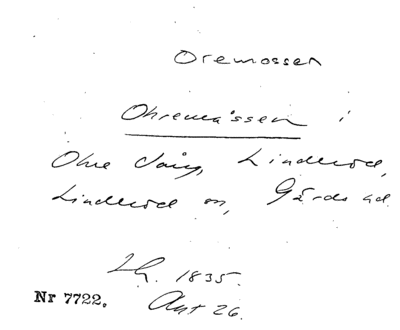 Oremossen
Ohremåssen i
Ohre äng, Linderöd,
Linderöd sn, Gärds hd.
Lh. 1835.
Nr 7722. Akt 26.